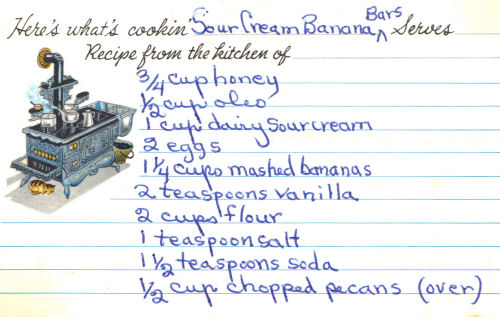 Here's what's cookin' Sour Cream Banana Bars Serves
Recipe from the kitchen of
3/4 cup honey
1/2 cup oleo
1 cup dairy sour cream
2 eggs
1 1/4 cups mashed bananas
2 teaspoons vanilla
2 cups flour
1 teaspoon salt
1 1/2 teaspoons soda
1/2 cup chopped pecans (over)